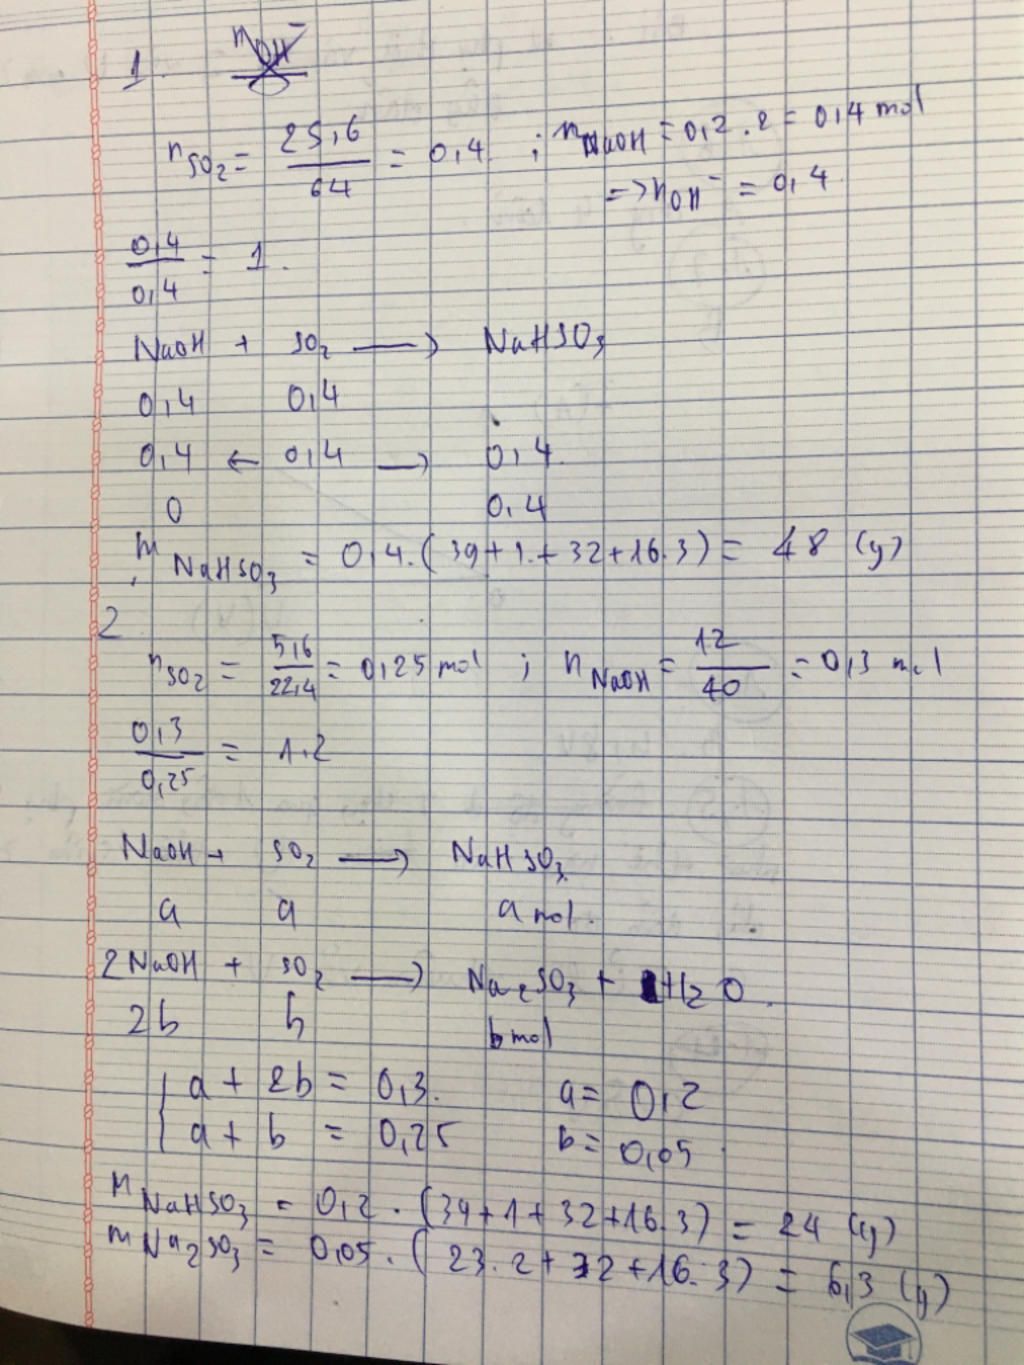 1.
n_SO2 = 25,6/64 = 0,4 ; n_NaOH = 0,2 . 2 = 0,4 mol
=> n_OH⁻ = 0,4
0,4/0,4 = 1.
NaOH + SO2 ⟶ NaHSO3
0,4 0,4
0,4 ← 0,4 → 0,4
0 0,4
m NaHSO3 = 0,4.(39+1.+32+16.3) = 48 (g)
2
n_SO2 = 5,6/22,4 = 0,25 mol ; n_NaOH = 12/40 = 0,3 mol
0,3/0,25 = 1.2
NaOH + SO2 ⟶ NaHSO3
a a a mol.
2NaOH + SO2 ⟶ Na2SO3 + H2O.
2b b b mol
{ a + 2b = 0,3. a = 0,2
a + b = 0,25 b = 0,05
m NaHSO3 = 0,2 . (39+1+32+16.3) = 24 (g)
m Na2SO3 = 0,05 . (23.2+32+16.3) = 6,3 (g)